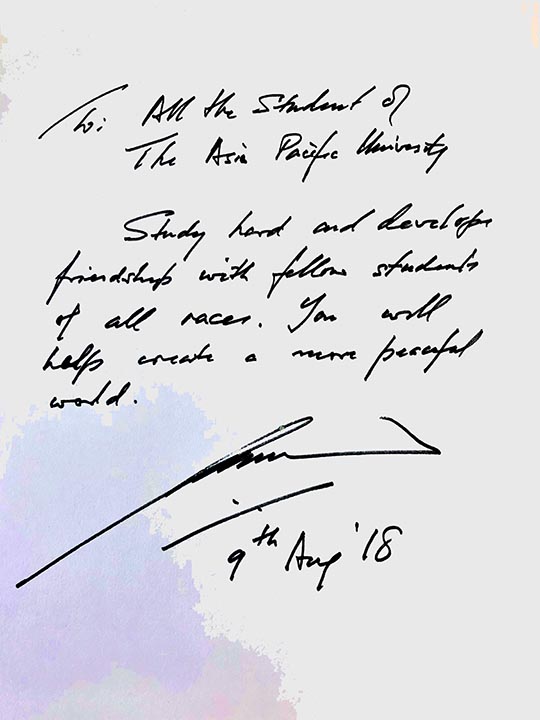 To: All the Student of
The Asia Pacific University
Study hard and develope
friendship with fellow students
of all races. You will
help create a more peaceful
world.
9th Aug '18